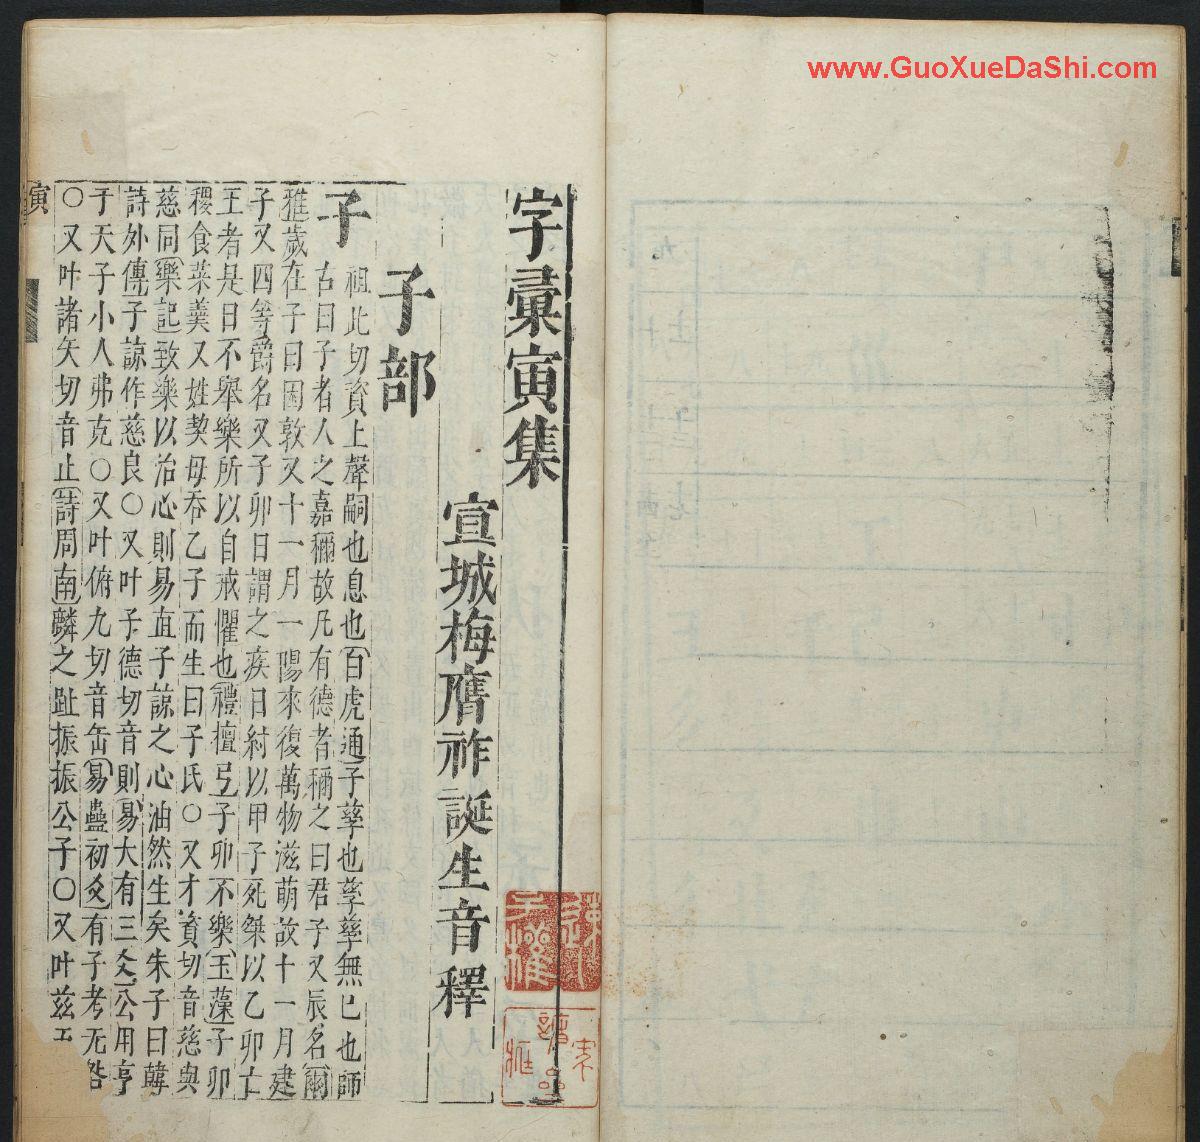 www.GuoXueDaShi.com
字彙寅集
宣城梅膺祚誕生音釋
子部
子
祖此切資上聲嗣也息也白虎通子孳也孳孳無已也師
古曰子者人之嘉稱故凡有德者稱之曰君子又辰名爾
雅歲在子曰困敦又十一月一陽來復萬物滋萌故十一月建
子又四等爵名又子卯日謂之疾日紂以甲子死桀以乙卯亡
王者是日不舉樂所以自戒懼也禮檀弓子卯不樂玉藻子卯
稷食菜羹又姓契母吞乙子而生曰子氏○又才資切音慈與
慈同樂記致樂以治心則易直子諒之心油然生矣朱子曰韓
詩外傳子諒作慈良○又叶子德切音則易大有三爻公用亨
于天子小人弗克○又叶俯九切音缶易蠱初爻有子考无咎
○又叶諸矢切音止詩周南麟之趾振振公子○又叶兹五
寅